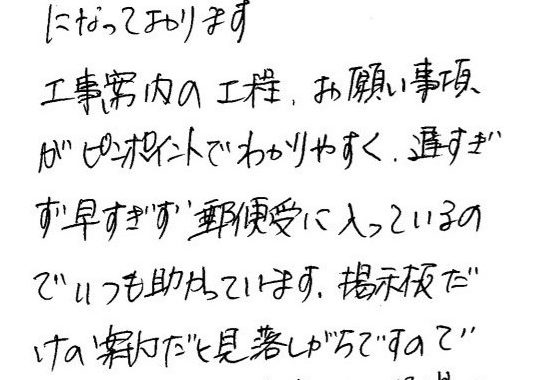 になっております
工事案内の工程、お願い事項
がピンポイントでわかりやすく、遅すぎ
ず早すぎず郵便受に入っているの
でいつも助かっています。掲示板だ
けの案内だと見落しがちですので